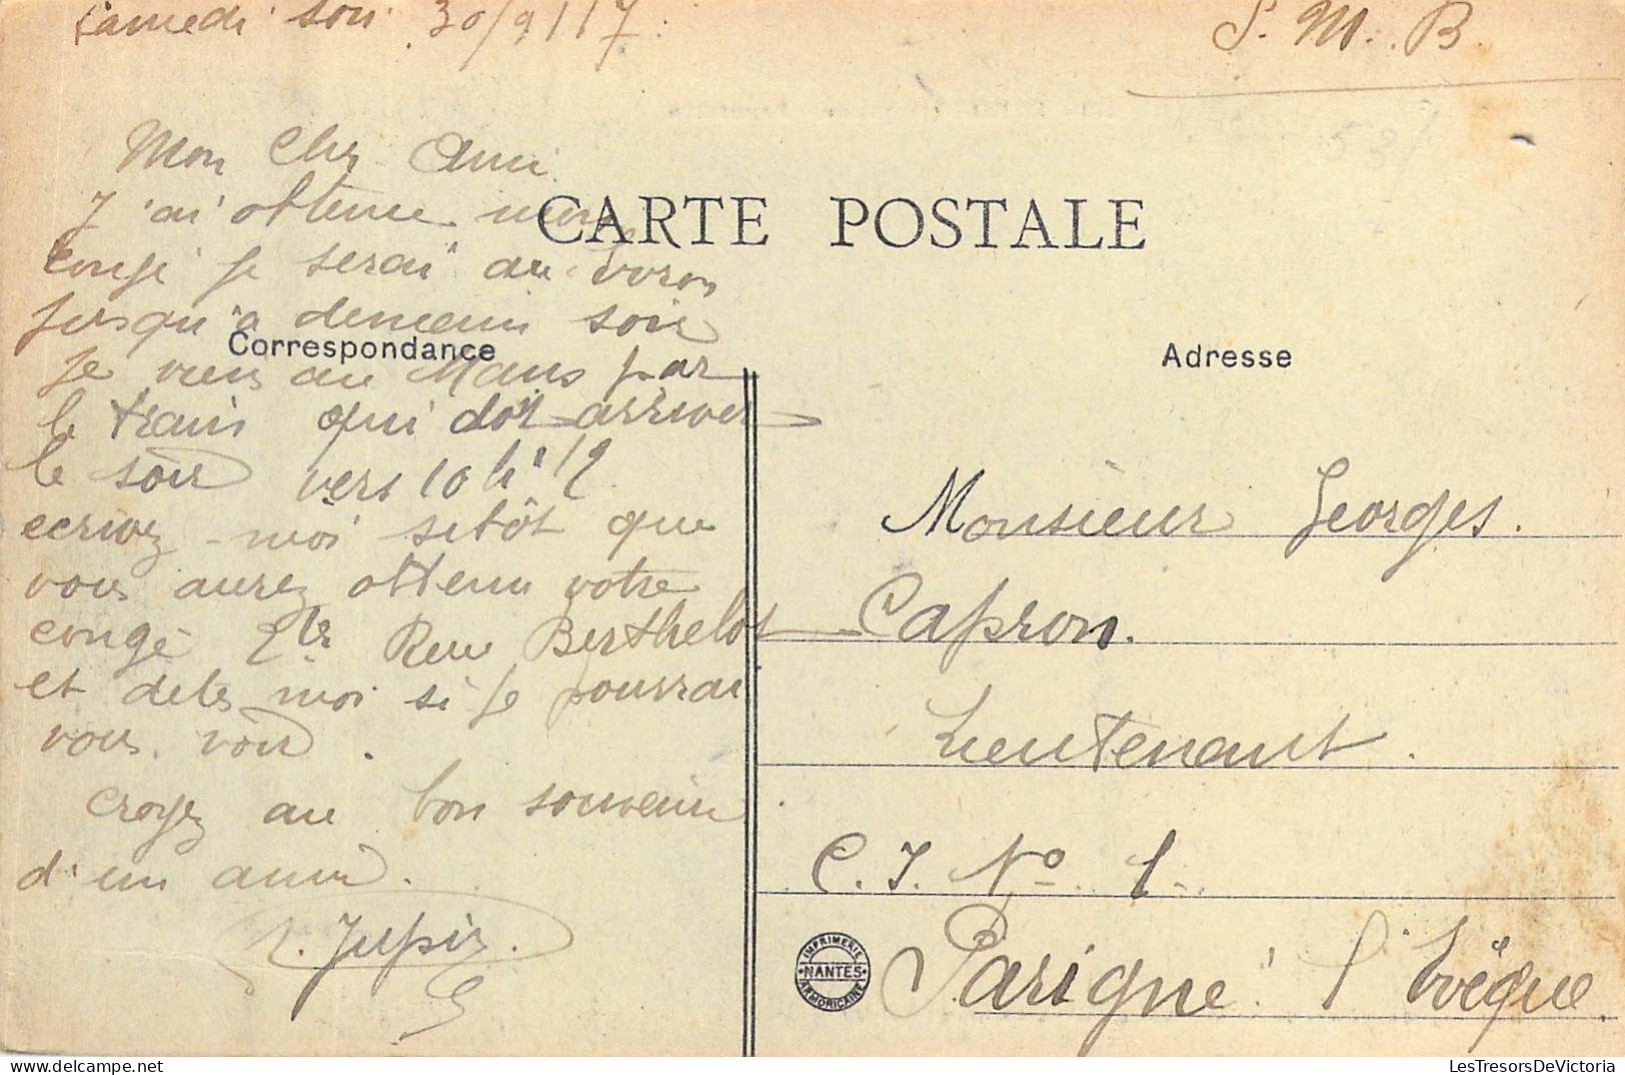 Samedi soir 30/9/17.
S. M. B.
Mon Cher Ami
J'ai obtenue mon
CARTE POSTALE
congé je serai au
jusqu'à demain soir
Correspondance
Adresse
Je viens au Mans par
le train qui doit arriver
le soir vers 10 h 1/2
ecrivez-moi sitôt que
vous aurez obtenu votre
congé Rue Berthelot
et dites moi si je pourrai
vous voir.
croyez au bon souvenir
d'un ami.
Jupin.
Monsieur Georges.
Capron.
Lieutenant.
C. I. No 1
Parigné l'Evêque
IMPRIMERIE
NANTES
ARMORICAINE
LesTresorsDeVictoria